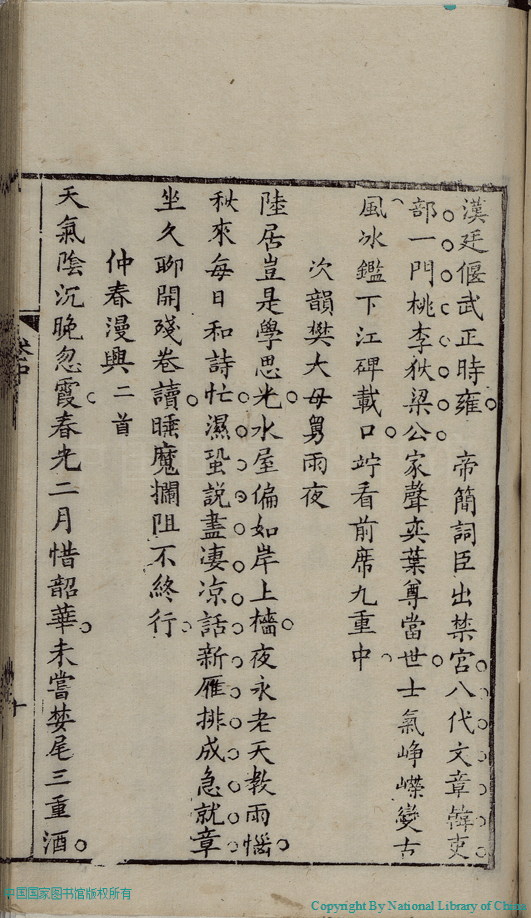 漢廷偃武正時雍　帝簡詞臣出禁宮八代文章韓吏
部一門桃李狄梁公家聲奕葉尊當世士氣崢嶸變古
風冰鑑下江碑載口竚看前席九重中
次韻樊大母舅雨夜
陸居豈是學思光水屋偏如岸上檣夜永老天教雨惱
秋來每日和詩忙濕蛩說盡凄凉話新雁排成急就章
坐久聊開殘卷讀睡魔攔阻不終行
仲春漫興二首
天氣陰沉晚忽霞春光二月惜韶華未嘗婪尾三重酒
中国国家图书馆版权所有
Copyright By National Library of China